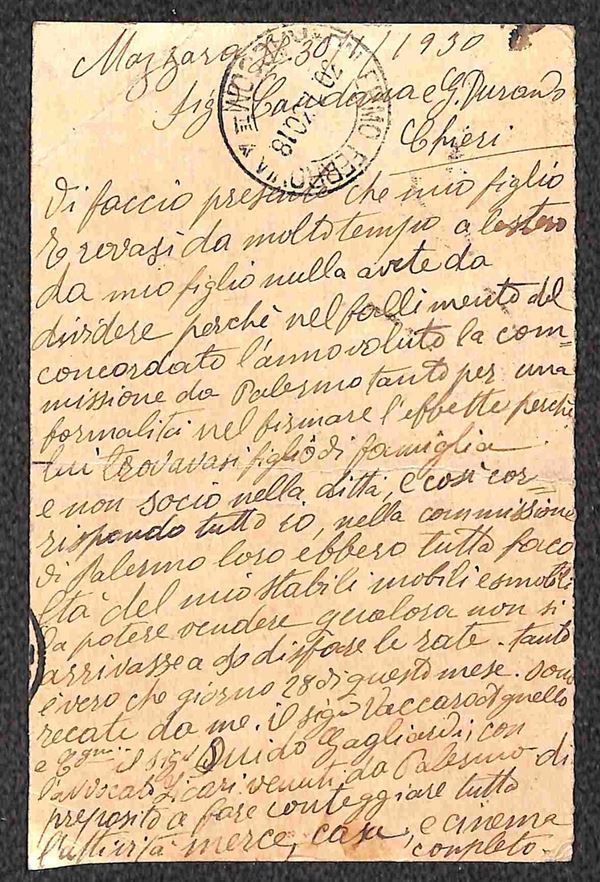 Mazzara li 30 / 1 / 1930
Sig. Candama e G. Durando
Chieri
Vi faccio presente che mio figlio
trovasi da molto tempo a lestero
da mio figlio nulla avete da
dividere perchè nel fallimento del
concordato l'anno voluto la com-
missione da Palermo tanto per una
formalità nel firmare l'effette perchè
lui trovavasi figlio di famiglia
e non socio nella ditta, e così cor
rispondo tutto io, nella commissione
di Palermo loro ebbero tutta faco
ltà del mio stabili mobili e smobili
da potere vendere qualosa non si
arrivasse a sodisfare le rate. tanto
è vero che giorno 28 di questo mese. sono
recate da me. il sigr Vaccaro Agnello
e il sigr Guido Gagliardi; con
l'avvocato Licari venuti da Palermo di
preposito a fare conteggiare tutto
l'attività merce, casa, e cinema
completo.
PALERMO FERROVIA